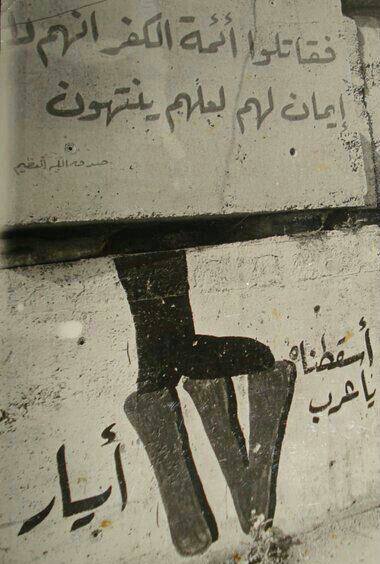 فقاتلوا أئمة الكفر انهم لا
إيمان لهم لعلهم ينتهون
صدق الله العظيم
أسقطناه
يا عرب
١٧
أيار